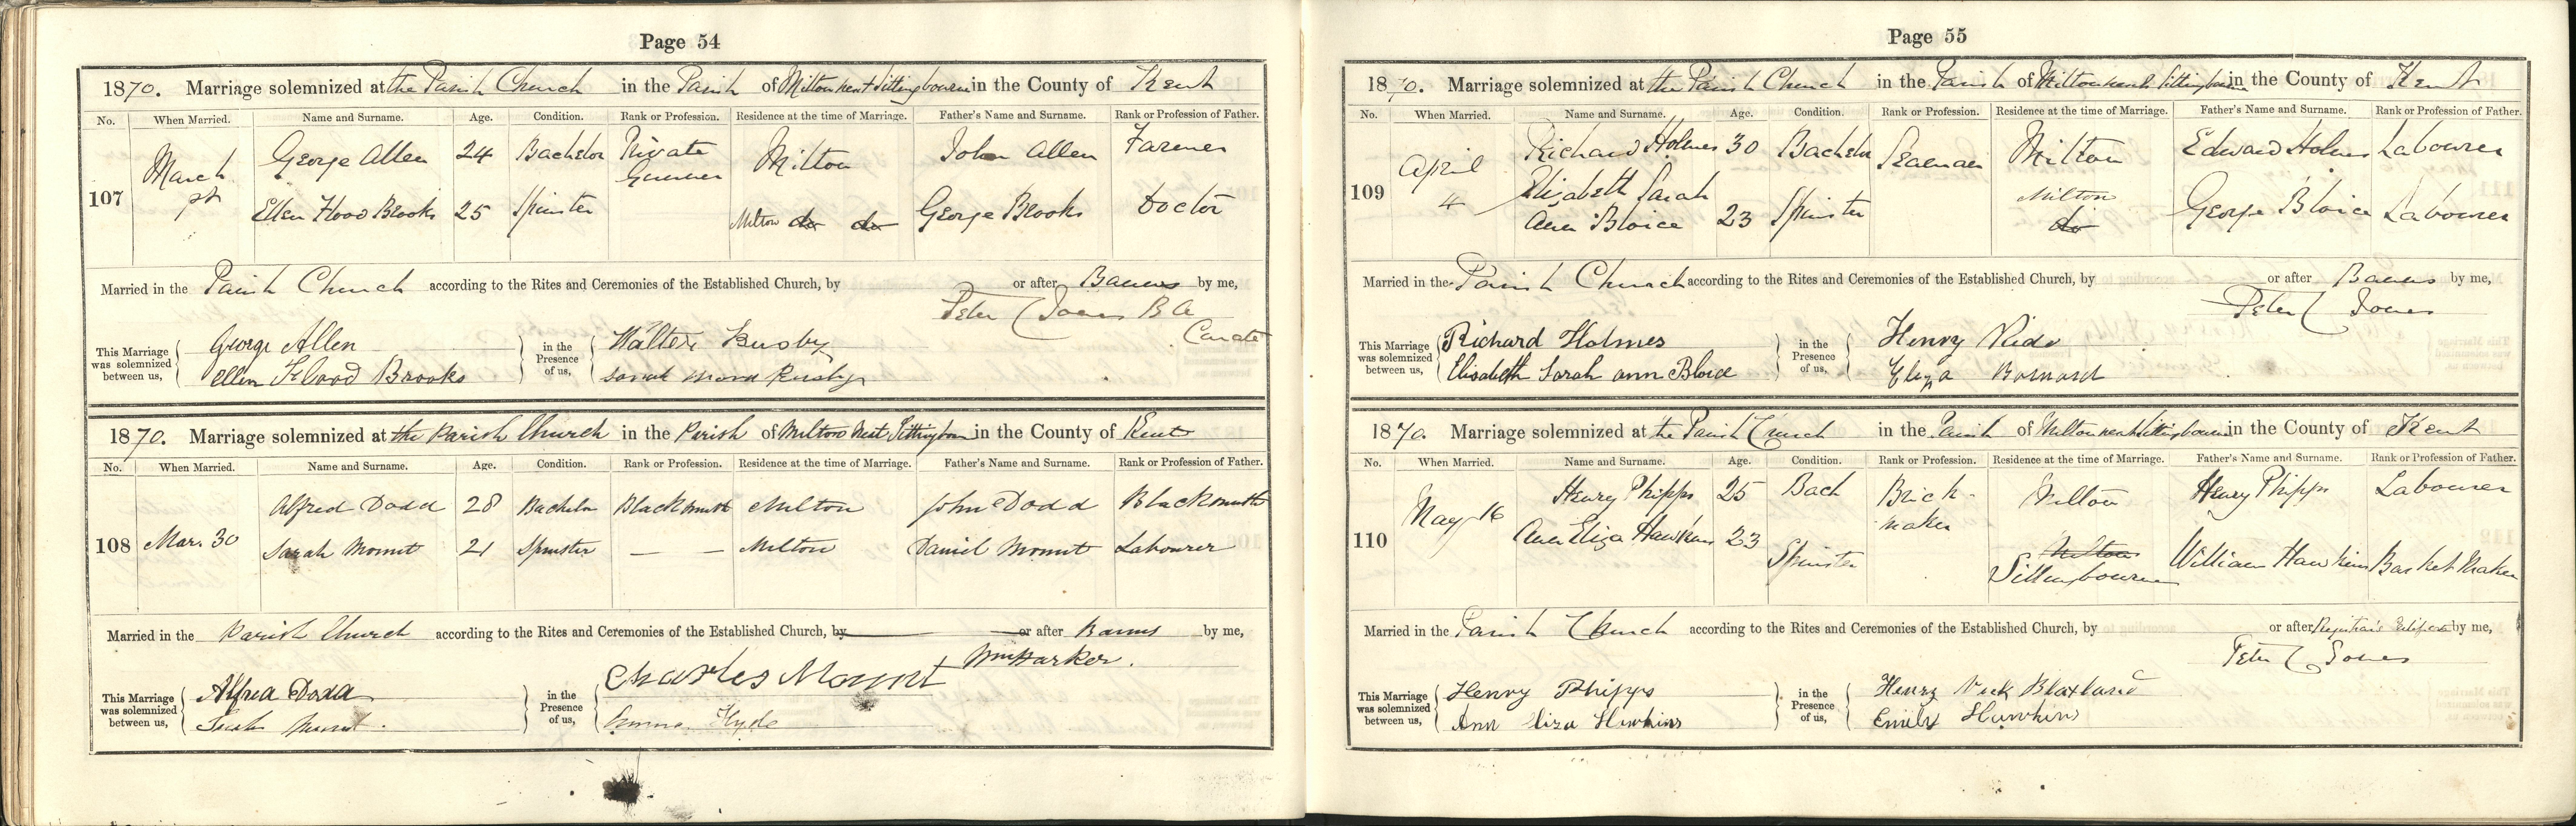 Page 54
1870. Marriage solemnized at the Parish Church in the Parish of Milton next Sittingbourne in the County of Kent
No. When Married. Name and Surname. Age. Condition. Rank or Profession. Residence at the time of Marriage. Father's Name and Surname. Rank or Profession of Father.
107 March George Allen 24 Bachelor Private Gunner Milton John Allen Farmer
Ellen Flood Brooks 25 Spinster Milton do do George Brooks Doctor
Married in the Parish Church according to the Rites and Ceremonies of the Established Church, by or after Banns by me,
Peter C Jones B A
Curate
This Marriage was solemnized between us, George Allen in the Presence of us, Walter Busby
Ellen Flood Brooks Sarah
1870. Marriage solemnized at the Parish Church in the Parish of Milton Next Sittingbourn in the County of Kent
No. When Married. Name and Surname. Age. Condition. Rank or Profession. Residence at the time of Marriage. Father's Name and Surname. Rank or Profession of Father.
108 Mar. 30 Alfred Dodd 28 Bachelor Blacksmith Milton John Dodd Blacksmith
Sarah Mount 21 Spinster — — Milton Daniel Mount Labourer
Married in the Parish Church according to the Rites and Ceremonies of the Established Church, by or after Banns by me,
Wm Harker.
This Marriage was solemnized between us, Alfred Dodd in the Presence of us, Charles Mount
Sarah Mount. Emma Hyde
Page 55
1870. Marriage solemnized at the Parish Church in the Parish of Milton next Sittingbourne in the County of Kent
No. When Married. Name and Surname. Age. Condition. Rank or Profession. Residence at the time of Marriage. Father's Name and Surname. Rank or Profession of Father.
109 April 4 Richard Holmes 30 Bachelor Seaman Milton Edward Holmes Labourer
Elizabeth Sarah Ann Bloice 23 Spinster Milton do George Bloice Labourer
Married in the Parish Church according to the Rites and Ceremonies of the Established Church, by or after Banns by me,
Peter C Jones
This Marriage was solemnized between us, Richard Holmes in the Presence of us, Henry Ride
Elisabeth Sarah ann Bloice Eliza Barnard
1870. Marriage solemnized at the Parish Church in the Parish of Milton next Sittingbourne in the County of Kent
No. When Married. Name and Surname. Age. Condition. Rank or Profession. Residence at the time of Marriage. Father's Name and Surname. Rank or Profession of Father.
110 May 16 Henry Phipps 25 Bach Brick-maker Milton Henry Phipps Labourer
Ann Eliza Hawkins 23 Spinster Milton Sittingbourne William Hawkins Basket Maker
Married in the Parish Church according to the Rites and Ceremonies of the Established Church, by or after Registrar's Certificate by me,
Peter C Jones
This Marriage was solemnized between us, Henry Phipps in the Presence of us, Henry Blaxland
Ann Eliza Hawkins Emily Hawkins